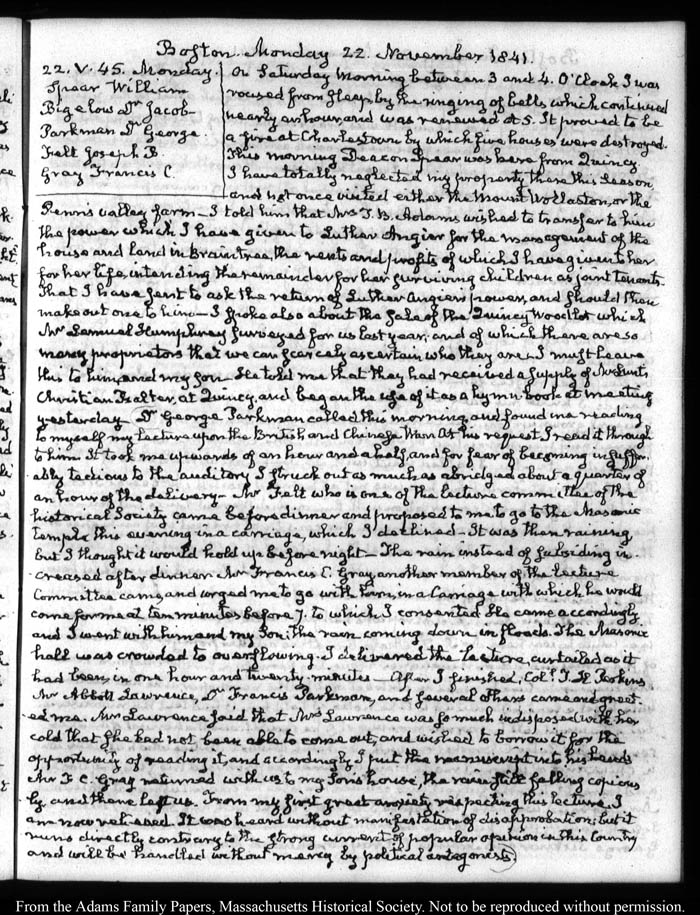 Boston Monday 22. November 1841.
22. V. 45. Monday.
Spear William
Bigelow Dr Jacob
Parkman Dr George.
Felt Joseph B.
Gray Francis C.
On Saturday morning between 3 and 4. O'Clock I was
roused from sleep by the ringing of bells which continued
nearly an hour, and was renewed at 5. It proved to be
a fire at Charlestown by which five houses were destroyed.
This morning Deacon Spear was here from Quincy.
I have totally neglected my property there this Season
and not once visited either the Mount Wollaston, or the
Penn's valley farm— I told him that Mrs T. B. Adams wished to transfer to him
the power which I have given to Luther Angier for the management of the
house and land in Braintree, the rents and profits of which I have given to her
for her life, intending the remainder for her surviving children as joint tenants.
That I have sent to ask the return of Luther Angier's power, and should then
make out one to him— I spoke also about the sale of the Quincy Woodlot which
Mr Samuel Humphrey surveyed for us last year, and of which there are so
many proprietors that we can scarcely ascertain who they are. I must leave
this to him, and my Son. He told me that they had received a supply of Mr Lunt's
Christian Psalter, at Quincy, and began the use of it as a hymn book at meeting
yesterday. Dr George Parkman called this morning, and found me reading
to myself my Lecture upon the British and Chinese War. At his request I read it through
to him. It took me upwards of an hour and a half, and for fear of becoming insuffer-
ably tedious to the auditory I struck out as much as abridged about a quarter of
an hour of the delivery— Mr Felt who is one of the lecture committee of the
historical Society came before dinner and proposed to me to go to the Masonic
temple this evening in a carriage, which I declined— It was then raining,
but I thought it would hold up before night— The rain instead of subsiding in-
creased after dinner Mr Francis C. Gray another member of the Lecture
Committee came, and urged me to go with him, in a Carriage with which he would
come for me at ten minutes before 7. to which I consented. He came accordingly
and I went with him and my Son; the rain coming down in floods. The Masonic
hall was crowded to overflowing. I delivered the Lecture, curtailed as it
had been, in one hour and twenty minutes— After I finished, Coll. T. H. Perkins
Mr Abbott Lawrence, Dr Francis Parkman, and several others came and greet-
ed me. Mr Lawrence said that Mrs Lawrence was so much indisposed with her
cold that she had not been able to come out, and wished to borrow it for the
opportunity of reading it, and accordingly I put the manuscript into his hands
Mr F. C. Gray returned with us to my Son's house, the rain still falling copious-
ly and there left us. From my first great anxiety respecting this lecture, I
am now released. It was heard without manifestation of disapprobation; but it
runs directly contrary to the strong current of popular opinion in this Country
and will be handled without mercy by political antagonists.
From the Adams Family Papers, Massachusetts Historical Society. Not to be reproduced without permission.